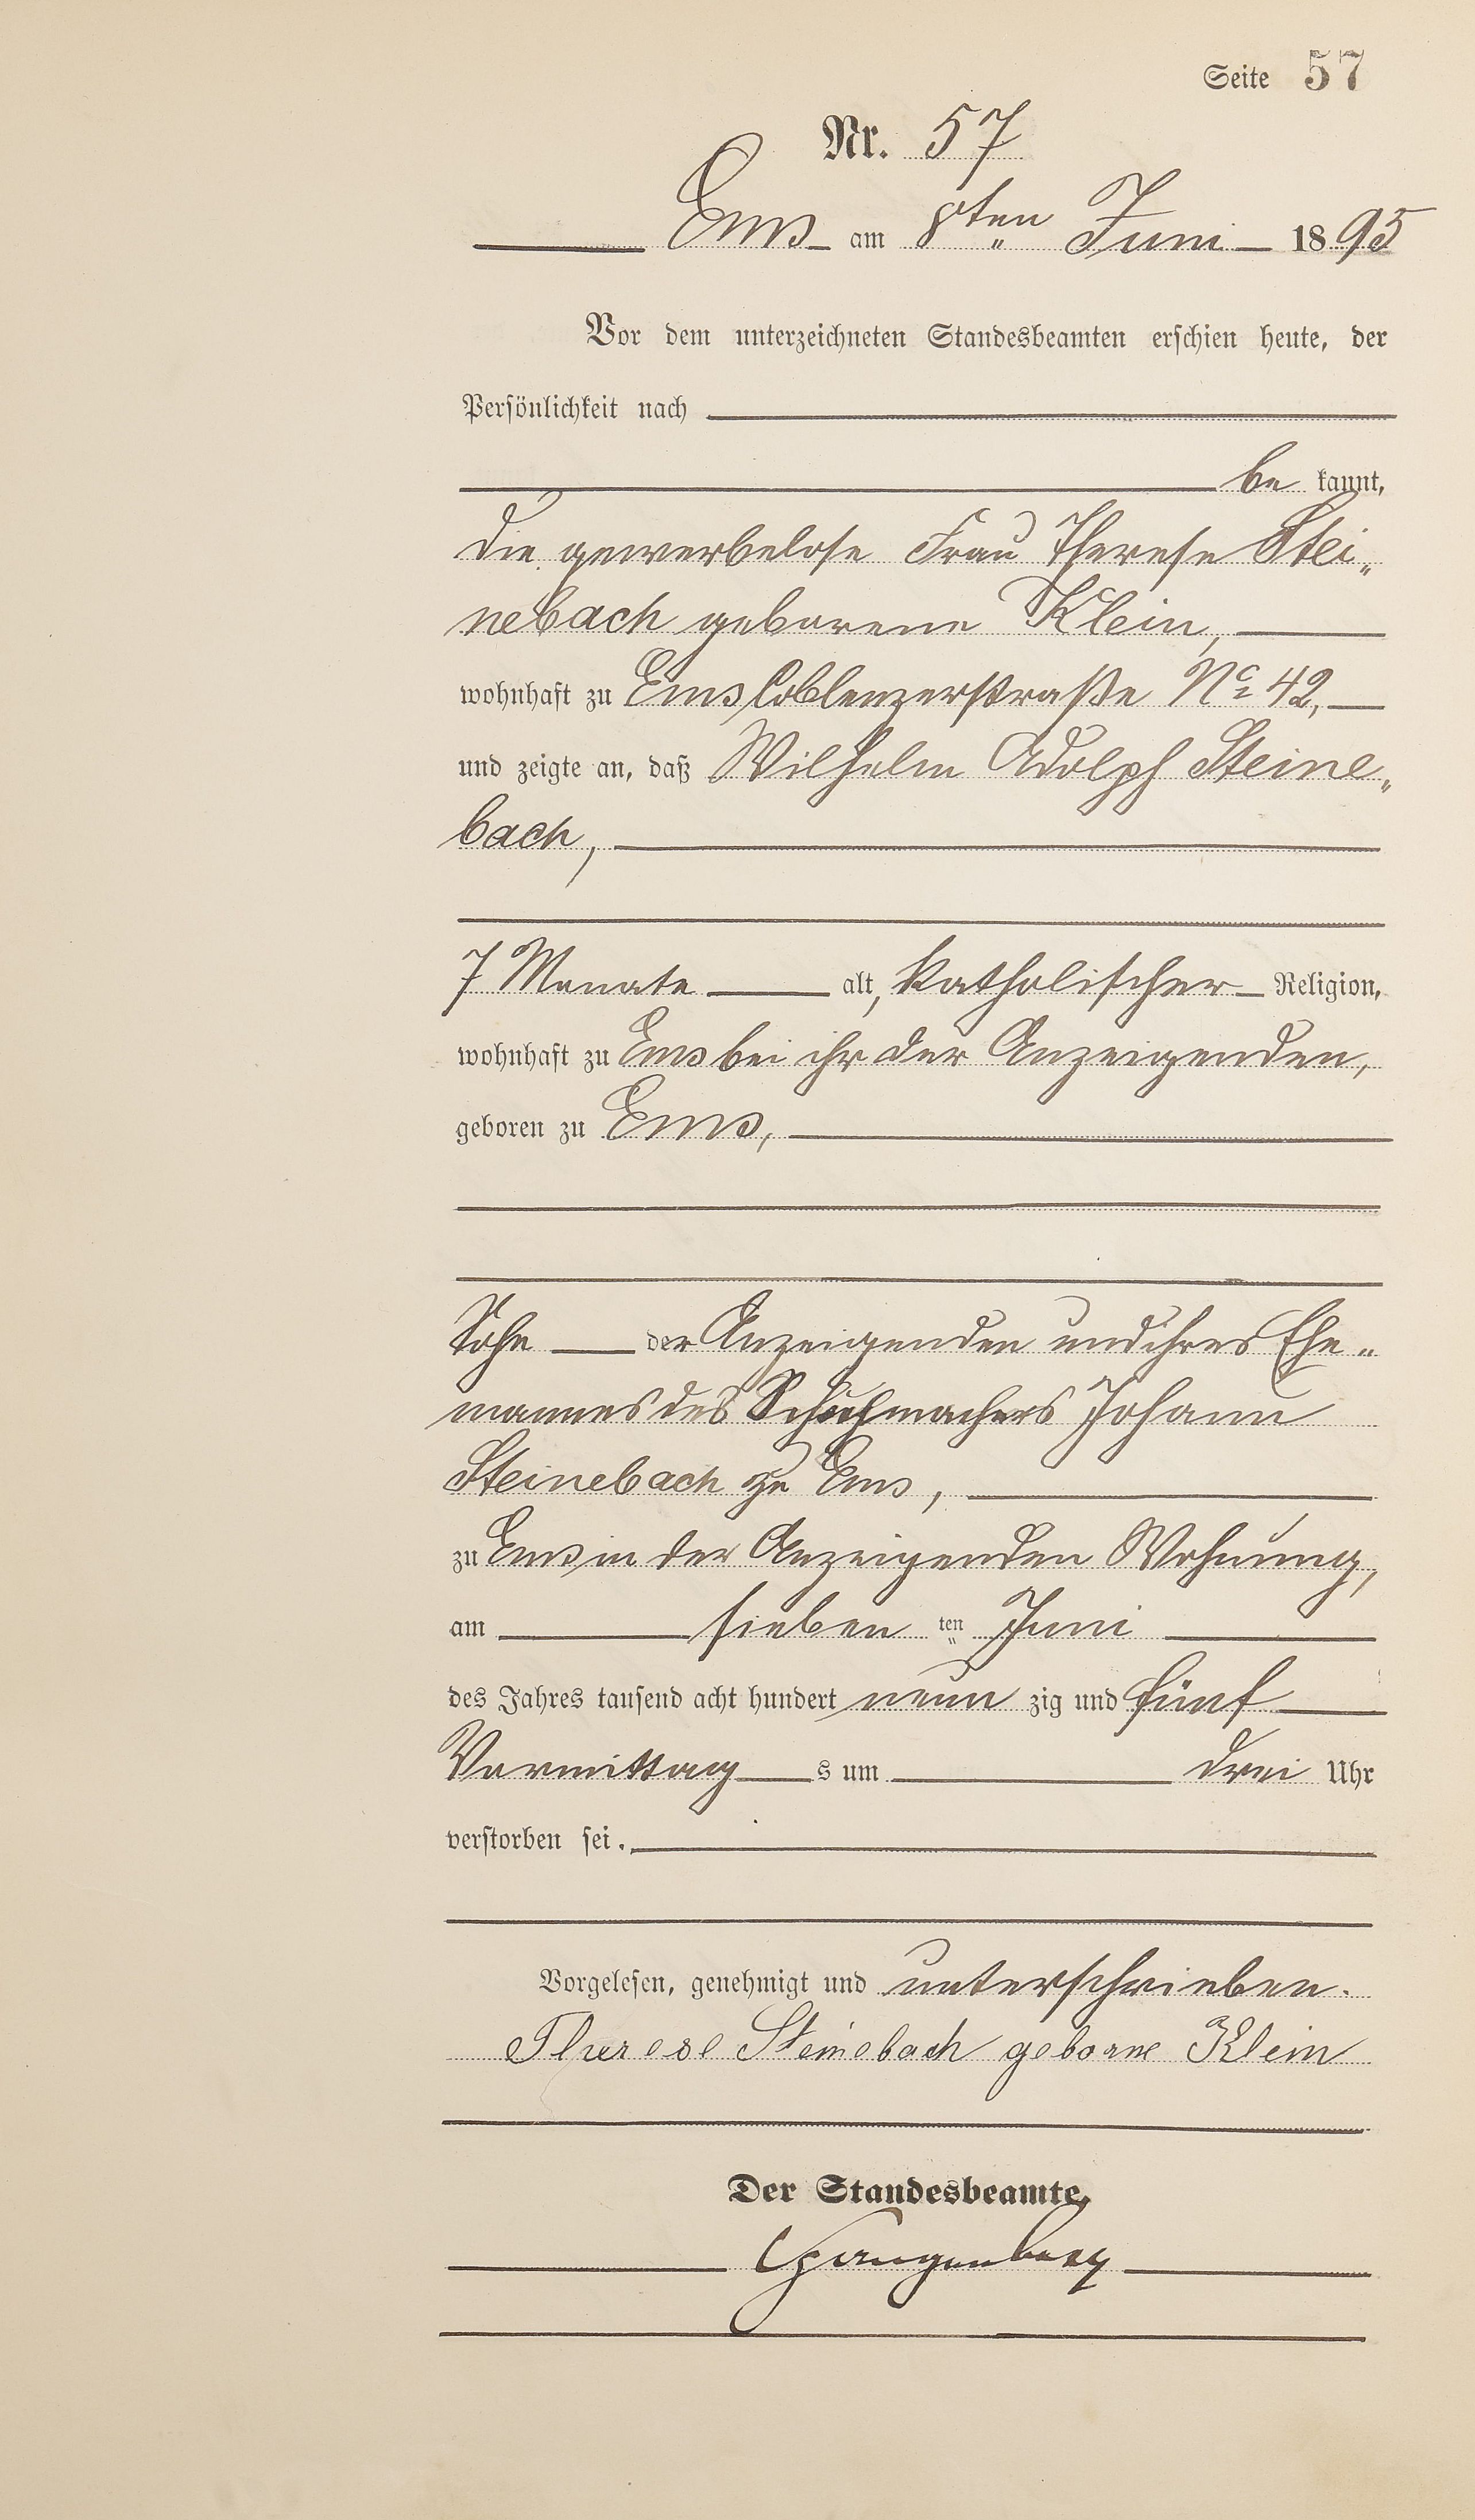 Seite 57
Nr. 57
Ems am 8ten Juni 1895
Vor dem unterzeichneten Standesbeamten erschien heute, der
Persönlichkeit nach
be kannt,
die gewerbelose Frau Therese Stei„
nebach geborene Klein,
wohnhaft zu Ems Coblenzerstraße No 42,
und zeigte an, daß Wilhelm Adolph Steine„
bach,
7 Monate alt, katholischer Religion,
wohnhaft zu Ems bei ihr der Anzeigenden,
geboren zu Ems,
Sohn der Anzeigenden und ihres Ehe„
mannes des Schuhmachers Johann
Steinebach zu Ems,
zu Ems in der Anzeigenden Wohnung,
am sieben ten Juni
des Jahres tausend acht hundert neun zig und fünf
Vormittag s um drei Uhr
verstorben sei.
Vorgelesen, genehmigt und unterschrieben.
Therese Steinebach geborne Klein
Der Standesbeamte,